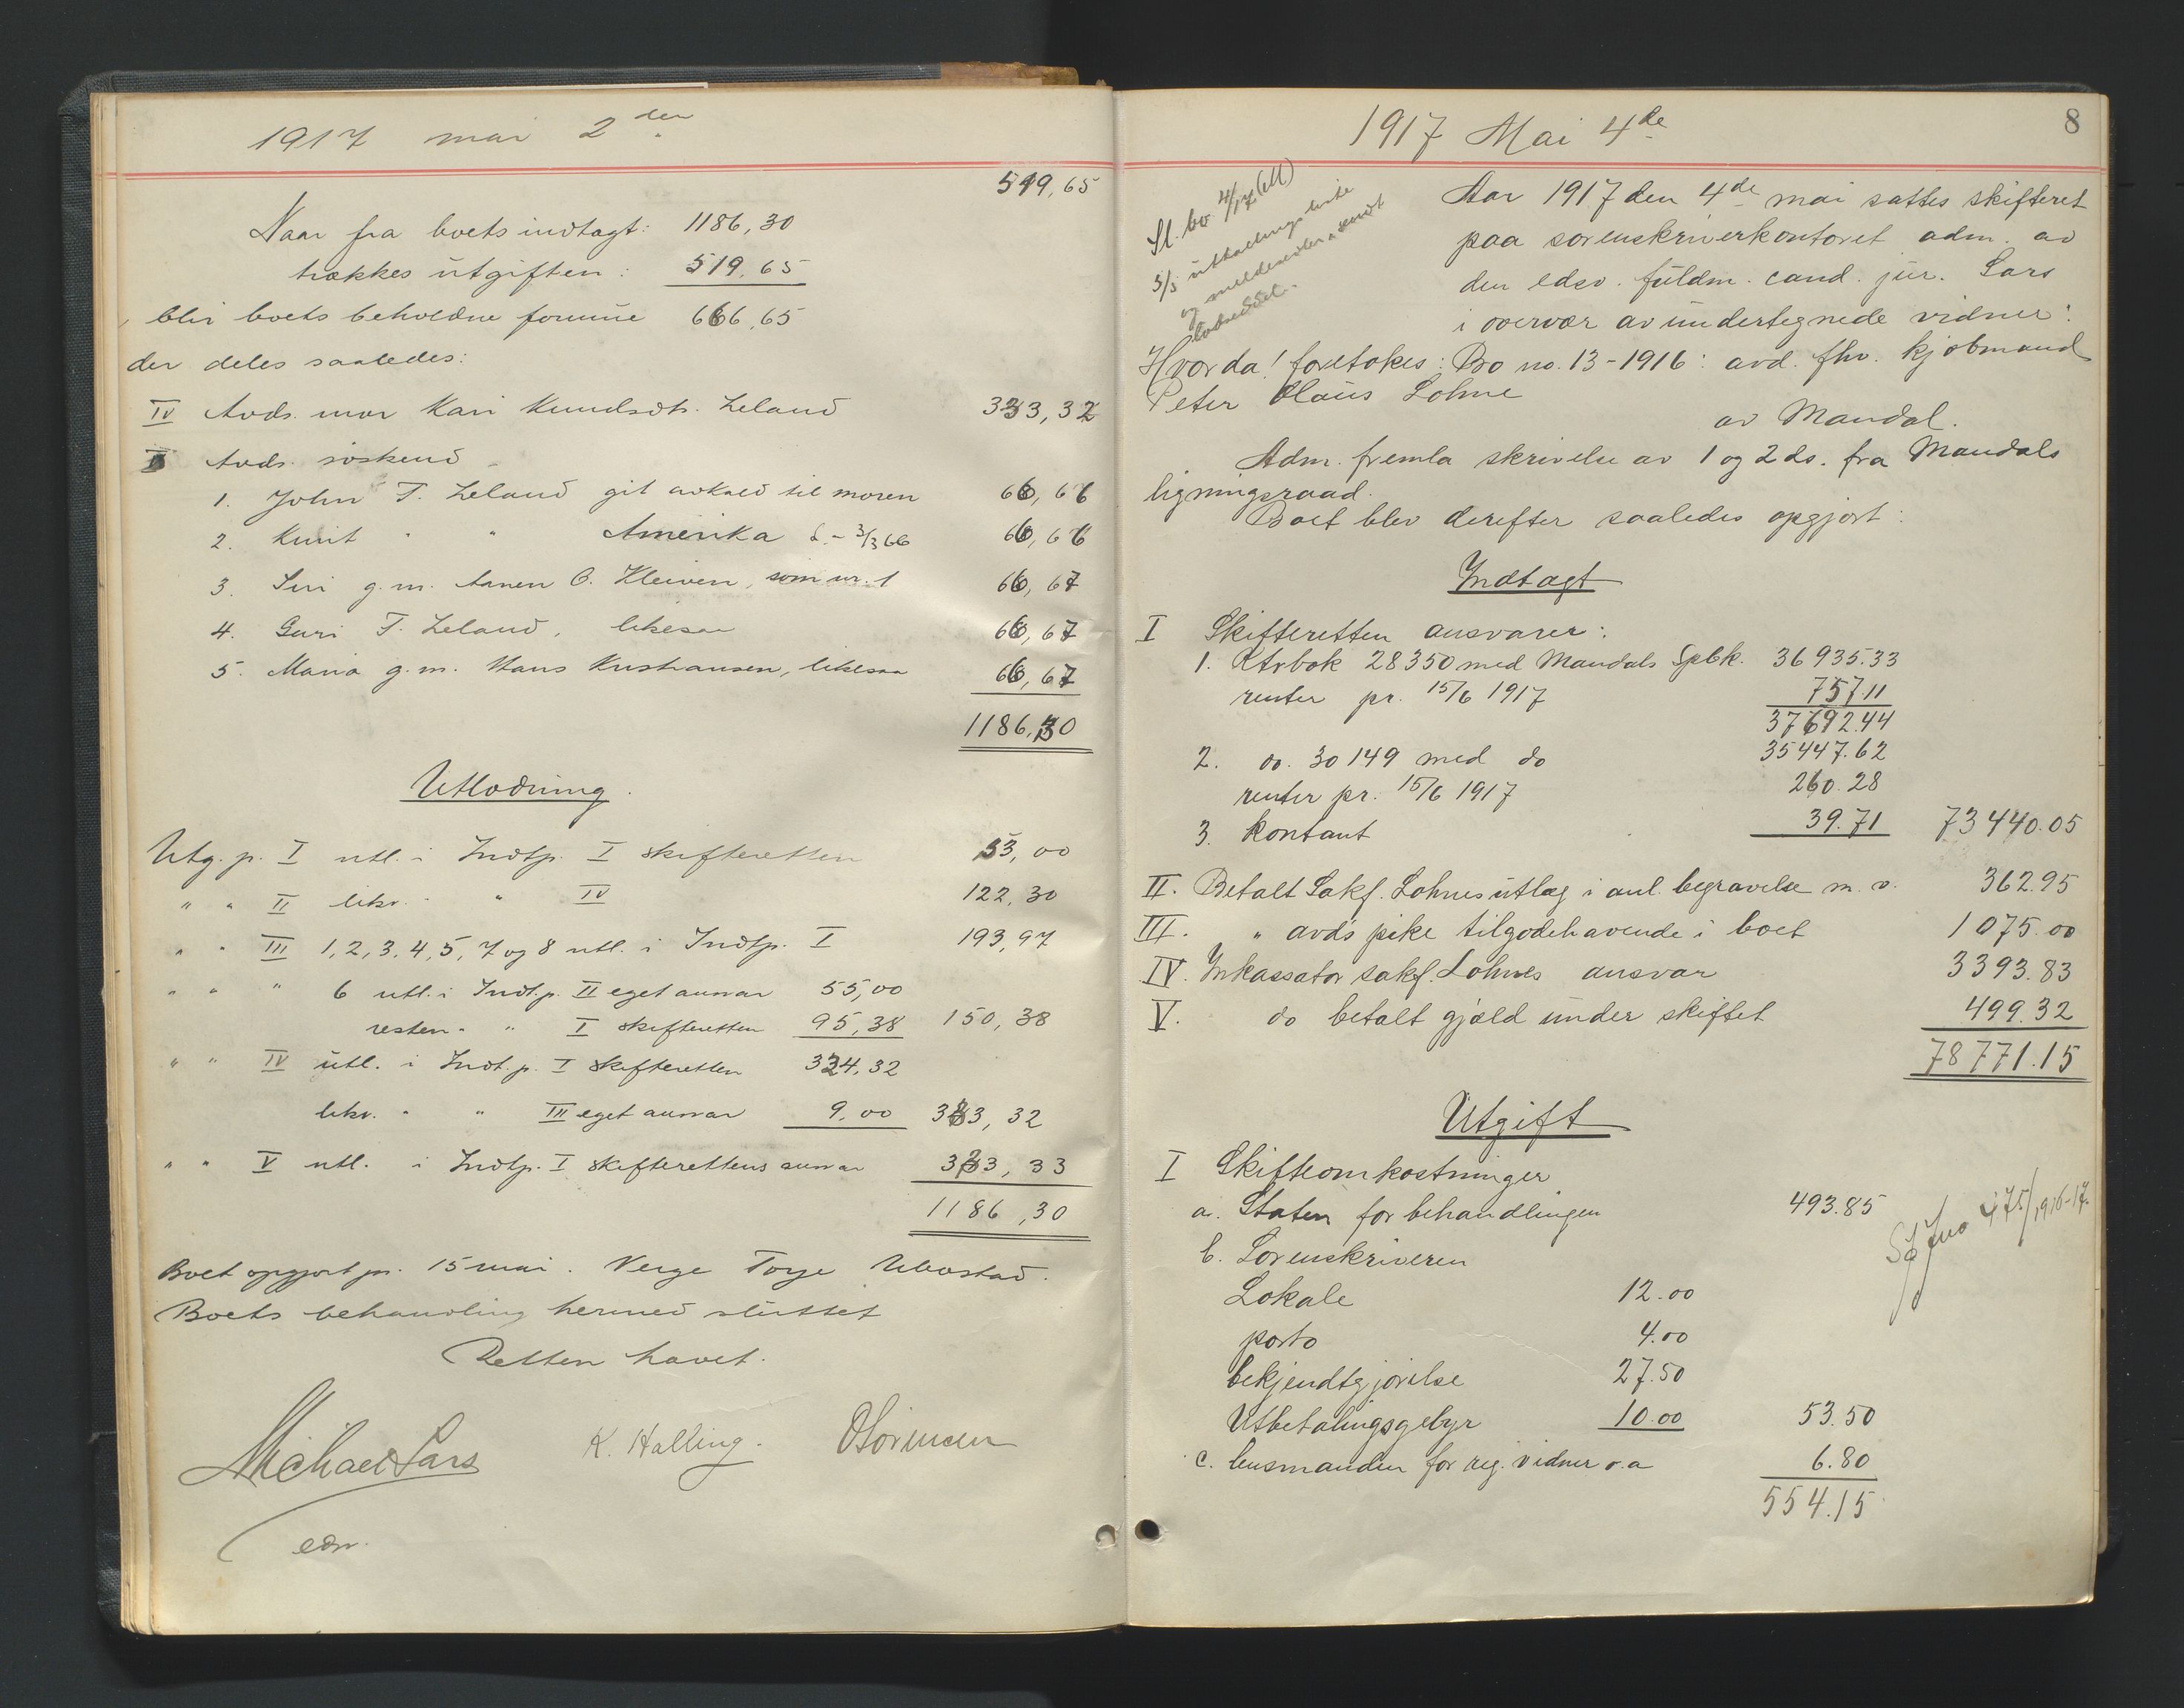 1917 mai 2den
519,65
Naar fra boets indtægt: 1186,30
trækkes utgiften: 519,65
blir boets beholdne formue 666,65
der deles saaledes:
IV Avds. mor Kari Knudsdtr. Leland 333,32
V Avds. søskend
1. John T. Leland git avkald til moren 66,66
2. Knut " " Amerika d. - 3/3 66 66,66
3. Siri g.m. Aanen O. Kleiven, som nr. 1 66,67
4. Guri T. Leland, likesaa 66,67
5. Maria g.m. Hans Kristiansen, likesaa 66,67
1186,30
Utlodning.
Utg.p. I utl. i Indtp. I skifteretten 53,00
" " II likv. " " IV 122,30
" " III 1, 2, 3, 4, 5, 7 og 8 utl. i Indtp. I 193,97
" " " 6 utl. i Indt.p. II eget ansvar 55,00
resten " " I skifteretten 95,38 150,38
" " IV utl. i Indt.p. I skifteretten 324,32
likv. " " III eget ansvar 9,00 333,32
" " V utl. i Indtp. I skifterettens ansvar 333,33
1186,30
Boet opgjort pr. 15 mai. Verge Torje Ubostad.
Boets behandling hermed sluttet
Retten hævet.
Michael Sars K. Halling. O Sørensen
edsv.
8
1917 Mai 4de
Sl. bo. 4/17
5/5 uttællingsliste
og meldesedler sendt
Aar 1917 den 4de mai sattes skifteret
paa sorenskriverkontoret adm. av
den edsv. fuldm. cand. jur. Sars
i overvær av undertegnede vidner:
Hvorda! foretokes: Bo no. 13-1916: avd. fhv. kjøbmand
Peter Olaus Lohne
av Mandal.
Adm. fremla skrivelse av 1 og 2 ds. fra Mandals
ligningsraad.
Boet blev derefter saaledes opgjort:
Indtægt
I Skifteretten ansvarer:
1. Ktrbok 28350 med Mandals Spbk. 36935.33
renter pr. 15/6 1917 757.11
37692.44
2. do. 30149 med do 35447.62
renter pr. 15/6 1917 260.28
3. kontant 39.71 73440.05
II. Betalt Sakf. Lohnes utlæg i anl. begravelse m.v. 362.95
III. " avd's pike tilgodehavende i boet 1075.00
IV. Inkassator sakf. Lohnes ansvar 3393.83
V. do betalt gjæld under skiftet 499.32
78771.15
Utgift
I Skifteomkostninger
a. Staten for behandlingen 493.85
475/1916-17.
b. Sorenskriveren
Lokale 12.00
porto 4.00
bekjendtgjørelse 27.50
Utbetalingsgebyr 10.00 53.50
c. lensmanden for reg. vidner o.a 6.80
554.15